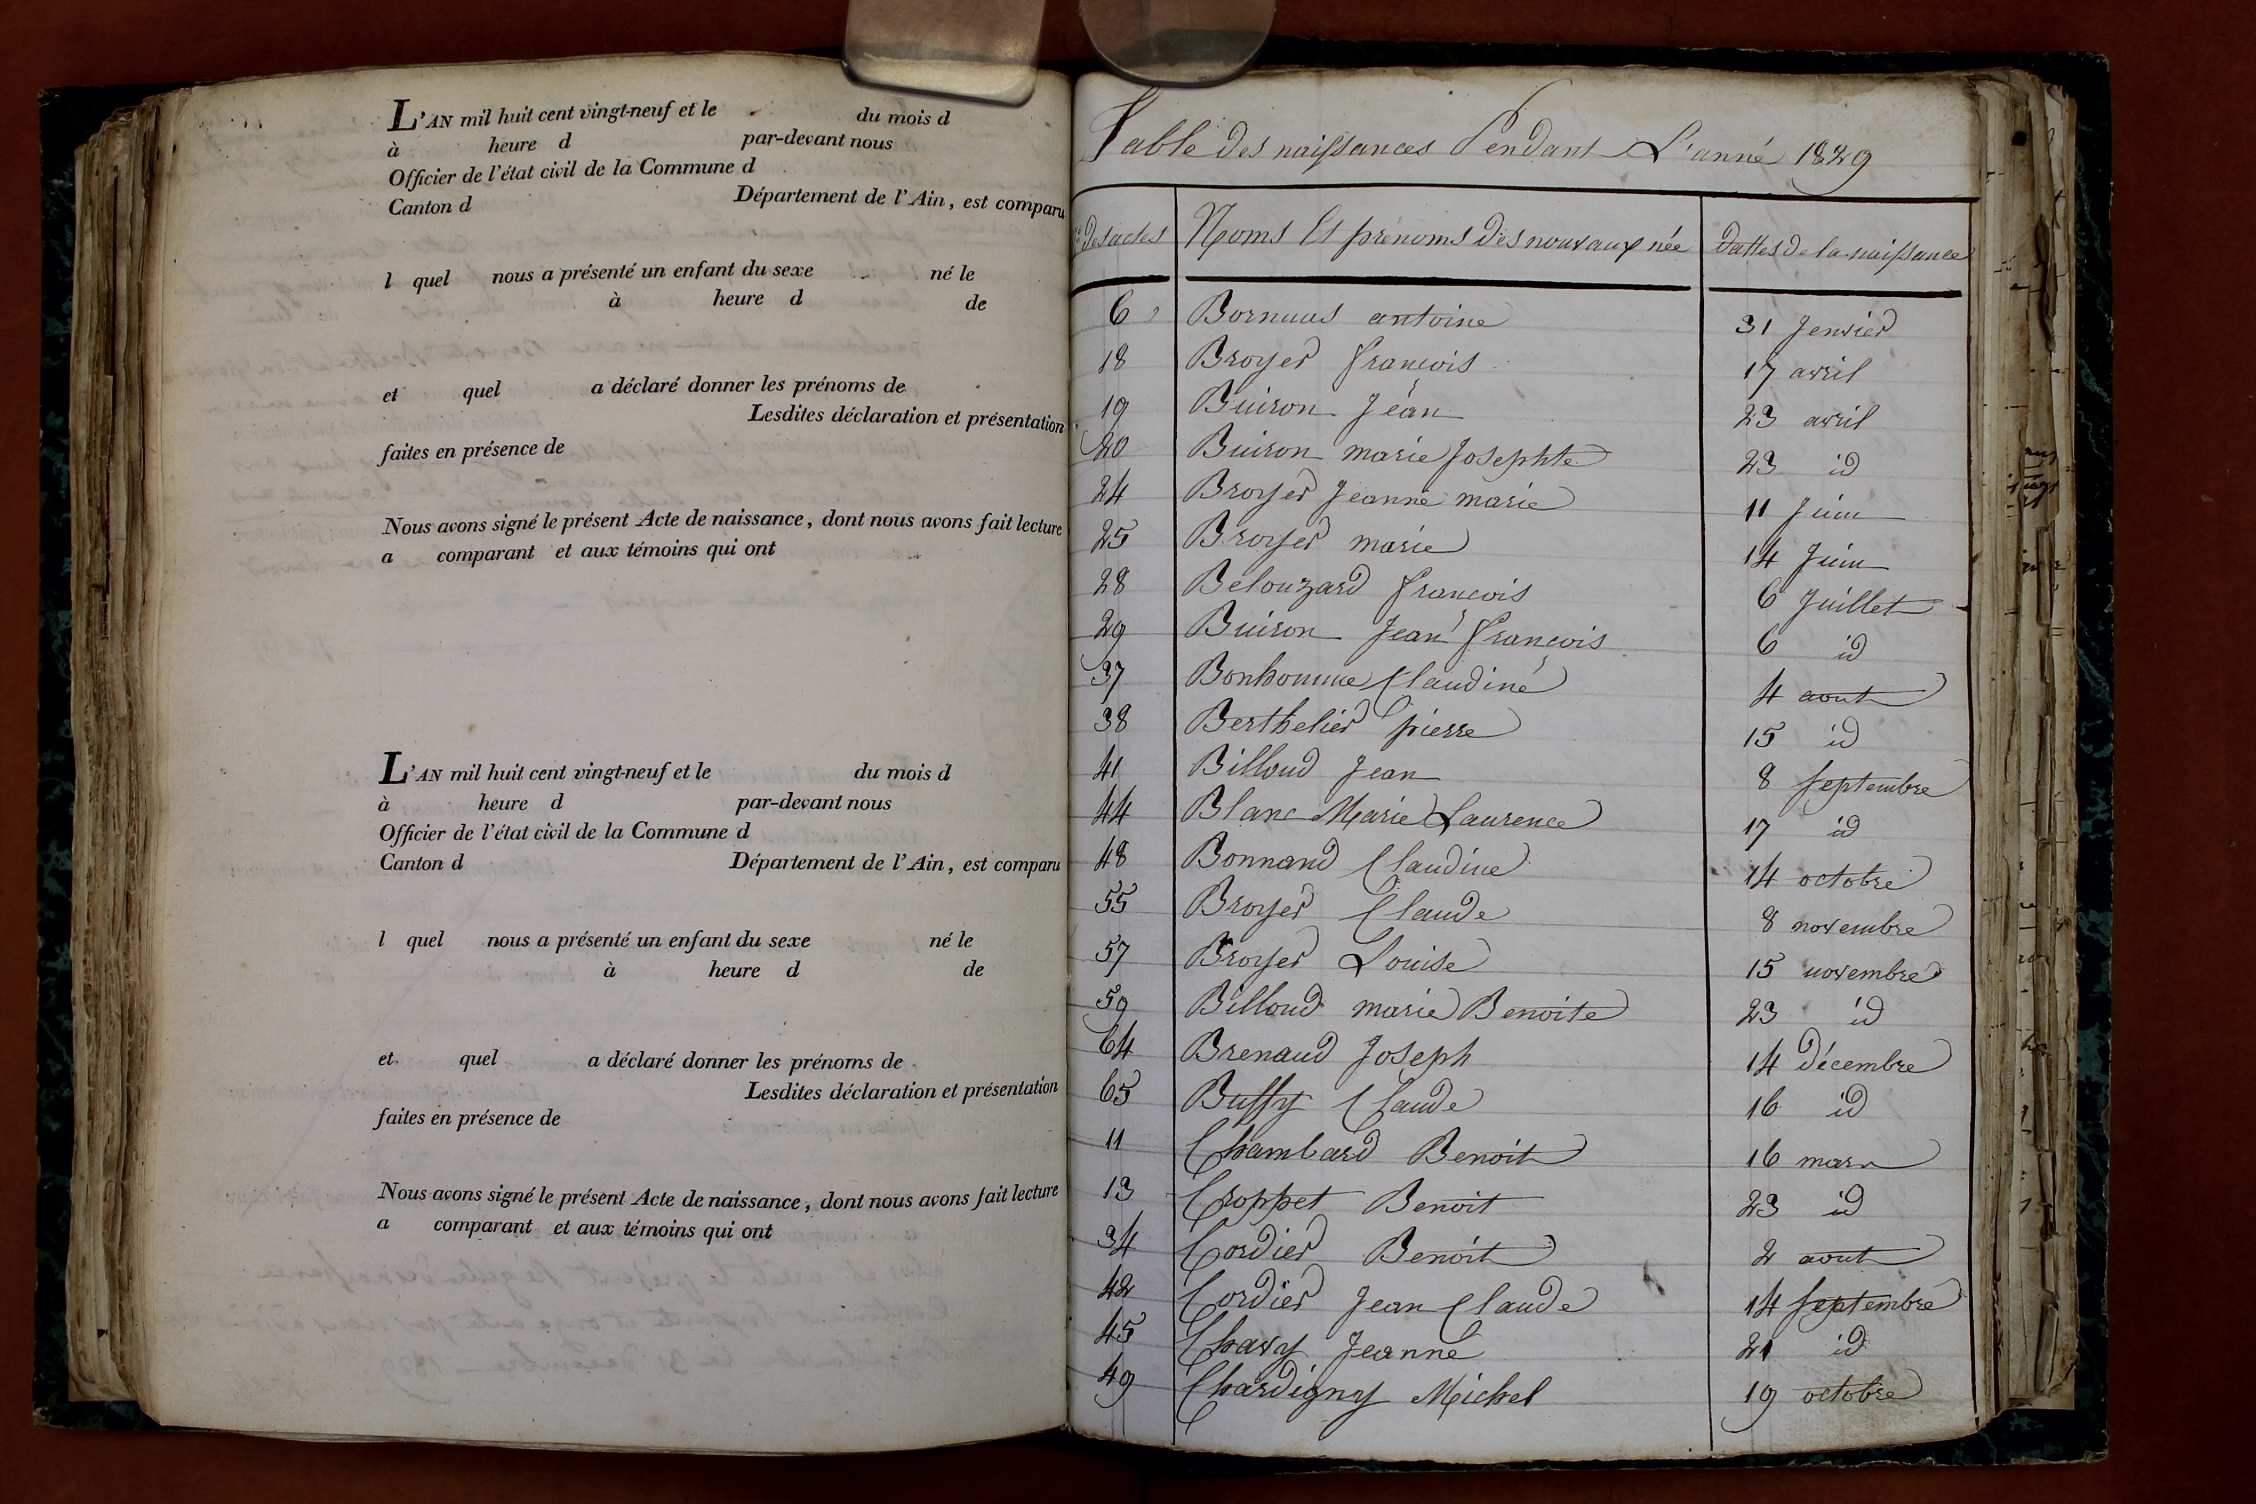 L'AN mil huit cent vingt-neuf et le du mois d
à heure d par-devant nous
Officier de l'état civil de la Commune d
Canton d Département de l'Ain, est comparu
l quel nous a présenté un enfant du sexe né le
à heure d de
et quel a déclaré donner les prénoms de
Lesdites déclaration et présentation
faites en présence de
Nous avons signé le présent Acte de naissance, dont nous avons fait lecture
a comparant et aux témoins qui ont
L'AN mil huit cent vingt-neuf et le du mois d
à heure d par-devant nous
Officier de l'état civil de la Commune d
Canton d Département de l'Ain, est comparu
l quel nous a présenté un enfant du sexe né le
à heure d de
et quel a déclaré donner les prénoms de
Lesdites déclaration et présentation
faites en présence de
Nous avons signé le présent Acte de naissance, dont nous avons fait lecture
a comparant et aux témoins qui ont
Table des naissances Pendant L'anné 1829
des actes Noms Et prénoms des nouvaux née Dattes de la naissance
6 antoine 31 Jenvier
18 Broyer françois 17 avril
19 Buiron Jean 23 avril
20 Buiron marie Josephte 23 id
24 Broyer Jeanne marie 11 Juin
25 Broyer marie 14 Juin
28 Belouzard françois 6 Juillet
29 Buiron Jean françois 6 id
37 Bonhomme Claudine 4 aout
38 Berthelier pierre 15 id
41 Billoud Jean 8 septembre
44 Blanc Marie Laurence 17 id
48 Bonnand Claudine 14 octobre
55 Broyer Claude 8 novembre
57 Broyer Louise 15 novembre
59 Billoud marie Benoite 23 id
64 Brenaud Joseph 14 décembre
65 Buffy Claude 16 id
11 Chambard Benoit 16 mars
13 Croppet Benoit 23 id
34 Cordier Benoit 2 aout
42 Cordier Jean Claude 14 septembre
45 Chavy Jeanne 21 id
49 Chardigny Michel 19 octobre